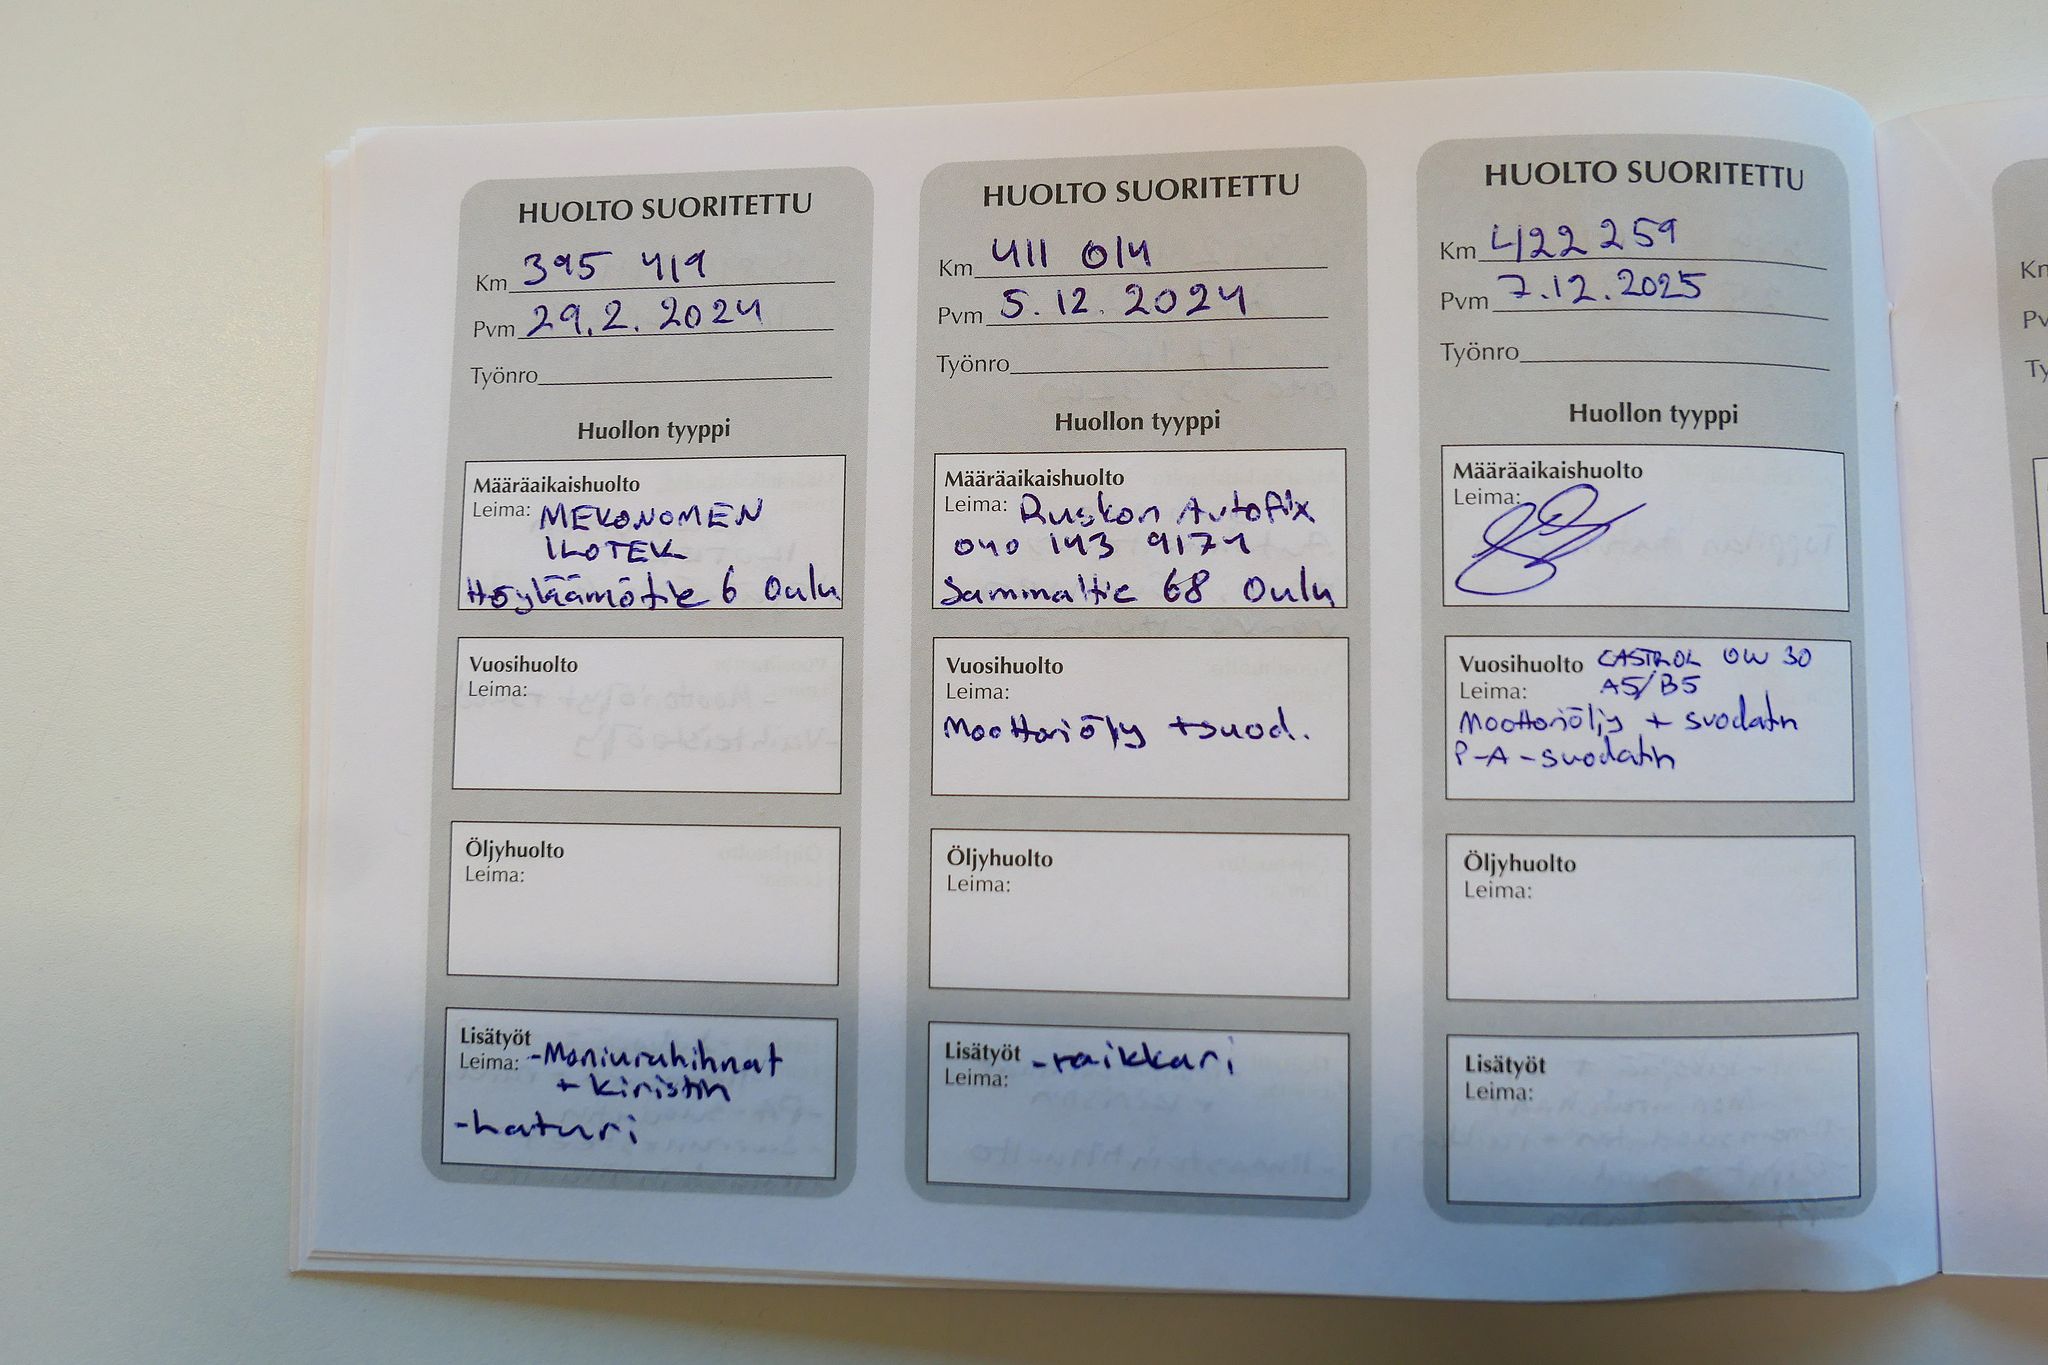 HUOLTO SUORITETTU
Km 395 419
Pvm 29.2.2024
Työnro
Huollon tyyppi
Määräaikaishuolto
Leima: MEKONOMEN
ILOTEK
Höyläämötie 6 Oulu
Vuosihuolto
Leima:
Öljyhuolto
Leima:
Lisätyöt
Leima: -Moniurahihnat
+ kiristin
-laturi
HUOLTO SUORITETTU
Km 411 014
Pvm 5.12.2024
Työnro
Huollon tyyppi
Määräaikaishuolto
Leima: Ruskon Autofix
040 143 9174
Sammaltie 68 Oulu
Vuosihuolto
Leima:
Moottoriöljy +suod.
Öljyhuolto
Leima:
Lisätyöt -raikkari
Leima:
HUOLTO SUORITETTU
Km 422 259
Pvm 7.12.2025
Työnro
Huollon tyyppi
Määräaikaishuolto
Leima:
Vuosihuolto CASTROL 0W 30
Leima: A5/B5
Moottoriöljy + suodatin
P-A-suodatin
Öljyhuolto
Leima:
Lisätyöt
Leima: